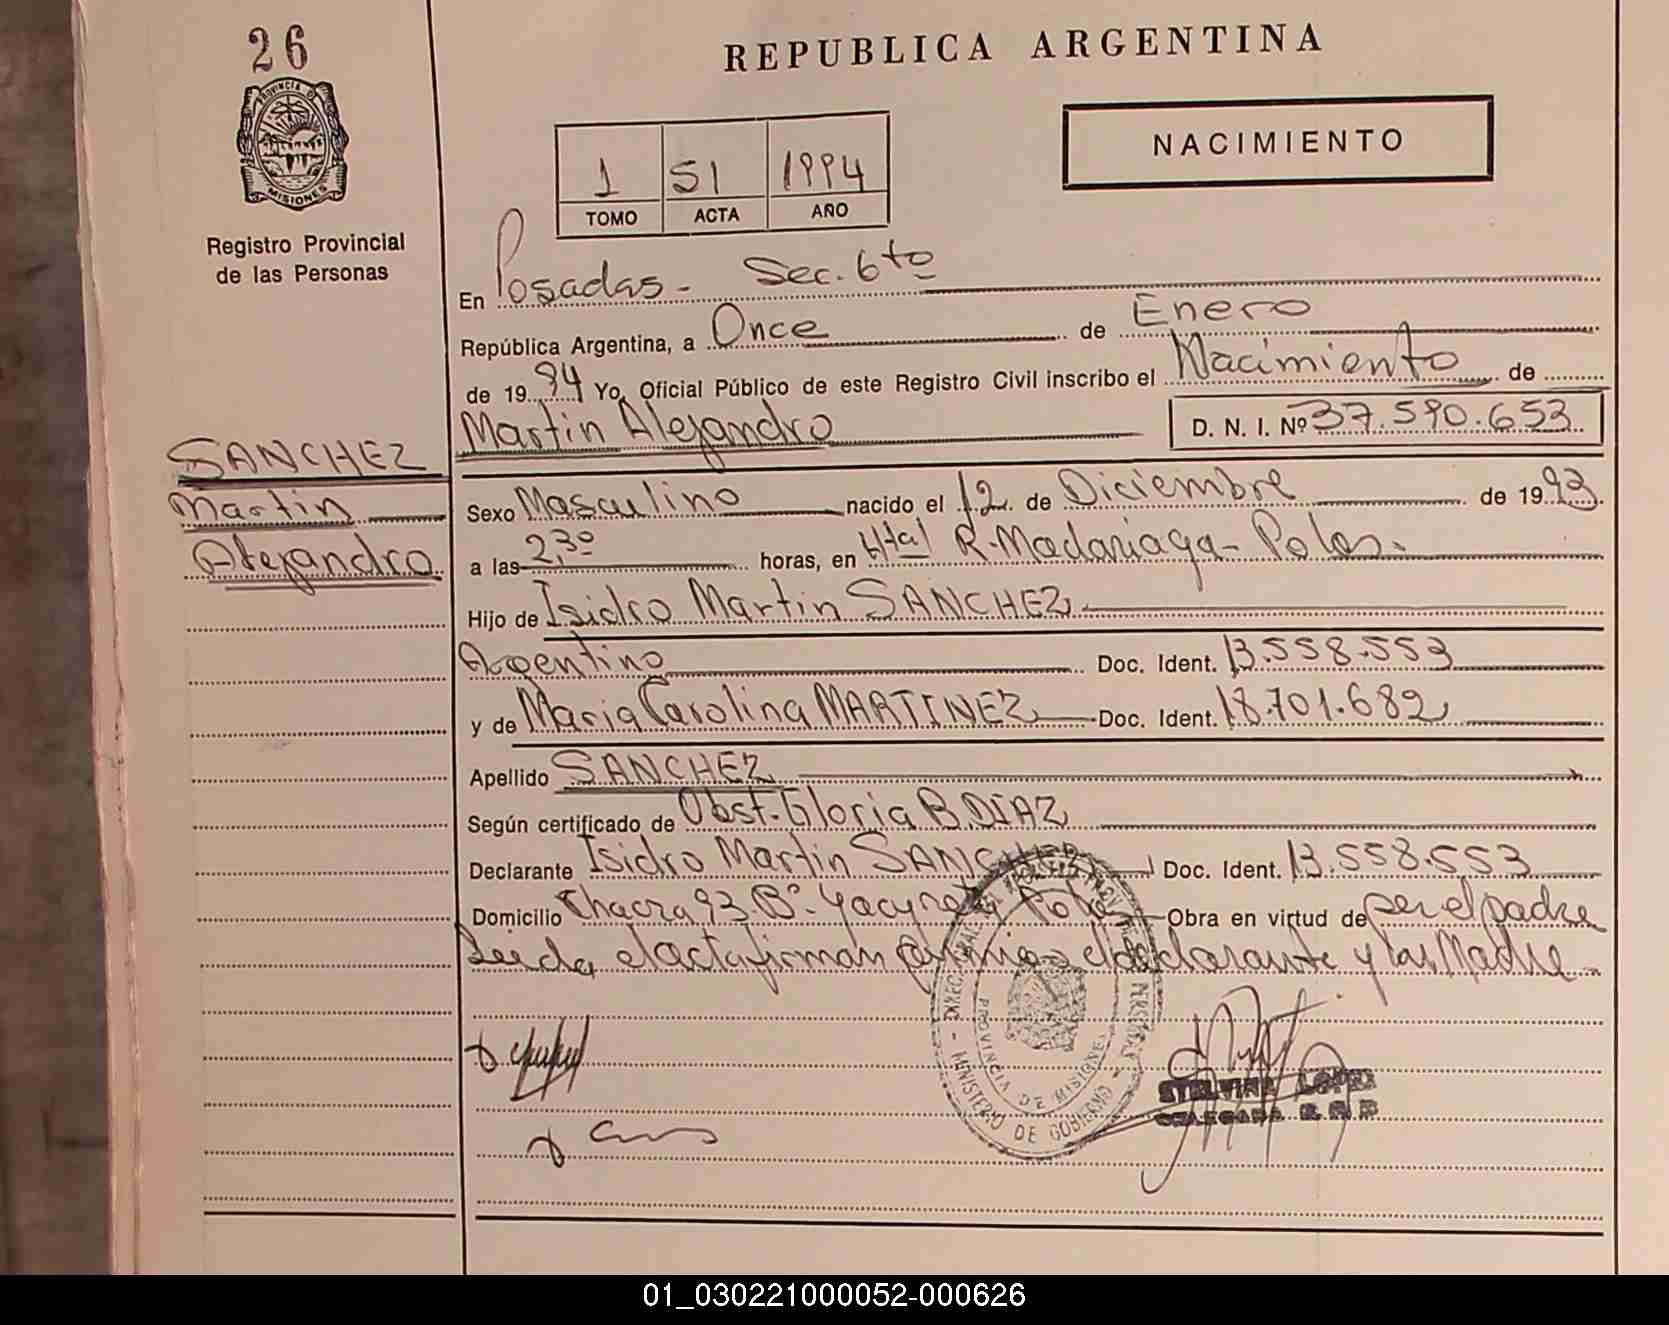 26
REPUBLICA ARGENTINA
PROVINCIA D
MISIONES
NACIMIENTO
1 51 1994
TOMO ACTA AÑO
Registro Provincial
de las Personas
En Posadas - Sec. 6to
República Argentina, a Once de Enero
de 1994 Yo, Oficial Público de este Registro Civil inscribo el Nacimiento de
Martin Alejandro D. N. I. Nº 37.590.653
SANCHEZ
Martin
Alejandro
Sexo Masculino nacido el 12 de Diciembre de 1993
a las 2,30 horas, en Htal R. Madariaga - Pdas.
Hijo de Isidro Martin SANCHEZ
Argentino Doc. Ident. 13.558.553
y de Maria Carolina MARTINEZ Doc. Ident. 18.701.682
Apellido SANCHEZ
Según certificado de Obst. Gloria B. DIAZ
Declarante Isidro Martin SANCHEZ Doc. Ident. 13.558.553
Domicilio Chacra 93 Bº. Yacyreta Pdas Obra en virtud de ser el padre
Leida el acta firman conmigo el declarante y la Madre
PROVINCIA DE MISIONES
MINISTERIO DE GOBIERNO
STELVINA LOPEZ
DELEGADA R.
01_030221000052-000626